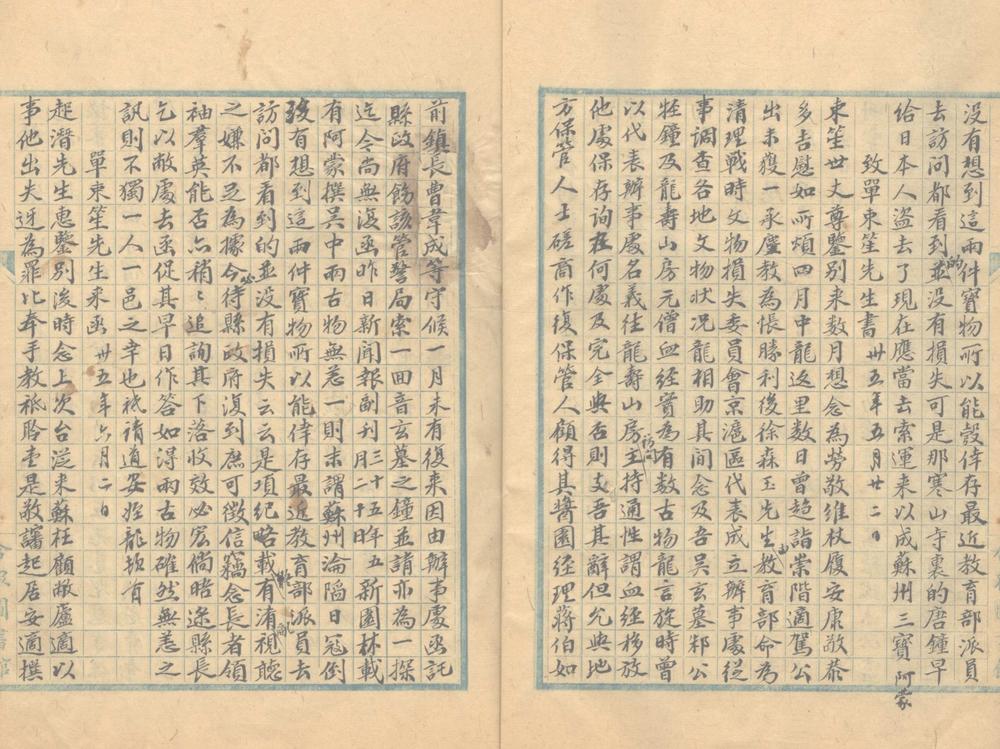 没有想到這兩件寶物所以能彀倖存最近教育部派員
去訪問都看到的並没有損失可是那寒山寺裏的唐鐘早
給日本人盜去了現在應當去索運来以成蘇州三寶 阿蒙
致單束笙先生書 卅五年五月廿二日
束笙世丈尊鑒别来数月想念為勞敬維杖履安康敬恭
多吉慰如所煩四月中龍返里数日曾趋詣崇階適駕公
出未獲一承麈教為悵勝利後徐森玉先生由教育部命為
清理戰時文物損失委員會京滬區代表成立辦事處從
事調查各地文物狀况龍相助其間念及吾吴玄墓邾公
牼鐘及龍壽山房元僧血經實為有数古物龍言旋時曾
以代表辦事處名義往龍壽山房訪問主持通性謂血經移放
他處保存询在何處及完全與否則支吾其辭但允與地
方保管人士磋商作復保管人顧得其醬園经理蔣伯如
前鎮長曹韋成等守候一月未有復来因由辦事處函託
縣政府飭該管警局索一回音玄墓之鐘並請亦為一探
迄今尚無復函昨日新聞報副刊三十五年五月二十昨新園林載
有阿蒙撰吴中兩古物無恙一則末謂蘇州淪陷日寇倒
没有想到這兩件寶物所以能倖存最近教育部派員去
訪問都看到的並没有損失云云是項紀略載有淆視聽
之嫌不足為據今必待縣政府復到庶可徵信竊念長者領
袖羣英能否亦稍稍追詢其下落收效必宏倘晤逵縣長
乞以敝處去函促其早日作答如得兩古物確然無恙之
訊則不獨一人一邑之幸也祗請道安姪龍頓首
單束笙先生来函 卅五年六月二日
起潛先生惠鑒别後時念上次台涖来蘇枉顧敝廬適以
事他出失迓為罪比奉手教祇聆壹是敬讅起居安適撰